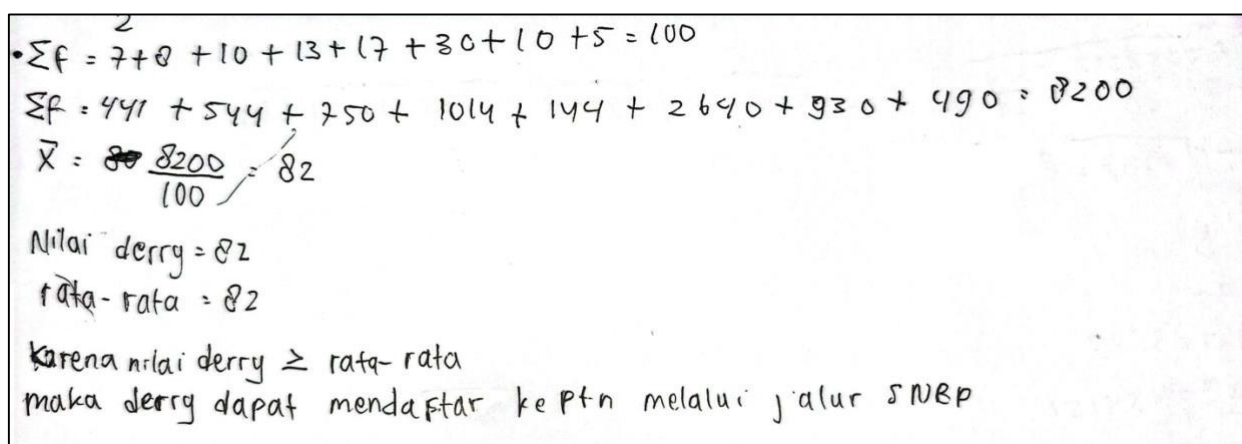 2
• Σf = 7+8 +10 + 13 + 17 + 30 + 10 + 5 = 100
Σf = 441 + 544 + 750 + 1014 + 144 + 2640 + 930 + 490 = 8200
X̄ = 8200/100 = 82
Nilai derry = 82
rata-rata = 82
Karena nilai derry ≥ rata-rata
maka derry dapat mendaftar ke ptn melalui jalur SNBP